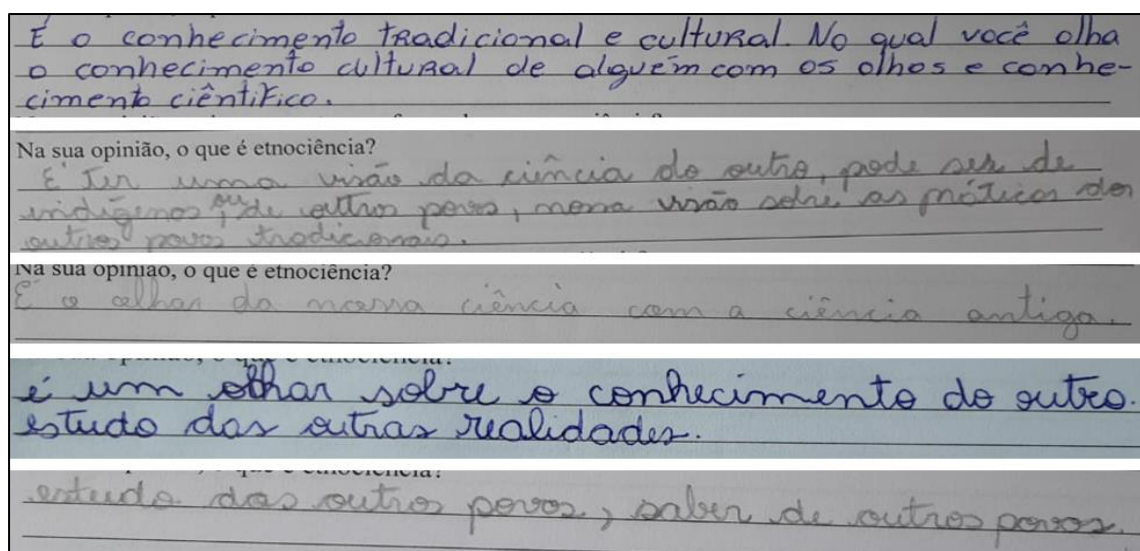 É o conhecimento tradicional e cultural. No qual você olha
o conhecimento cultural de alguém com os olhos e conhe-
cimento ciêntifico.
Na sua opinião, o que é etnociência?
É Ter uma visão da ciência do outro, pode ser de
indígenas, ou de outros povos, nossa visão sobre as práticas dos
outros povos tradicionais.
Na sua opinião, o que é etnociência?
É o olhar da nossa ciência com a ciência antiga.
é um olhar sobre o conhecimento do outro.
estudo das outras realidades.
estudo dos outros povos, saber de outros povos.